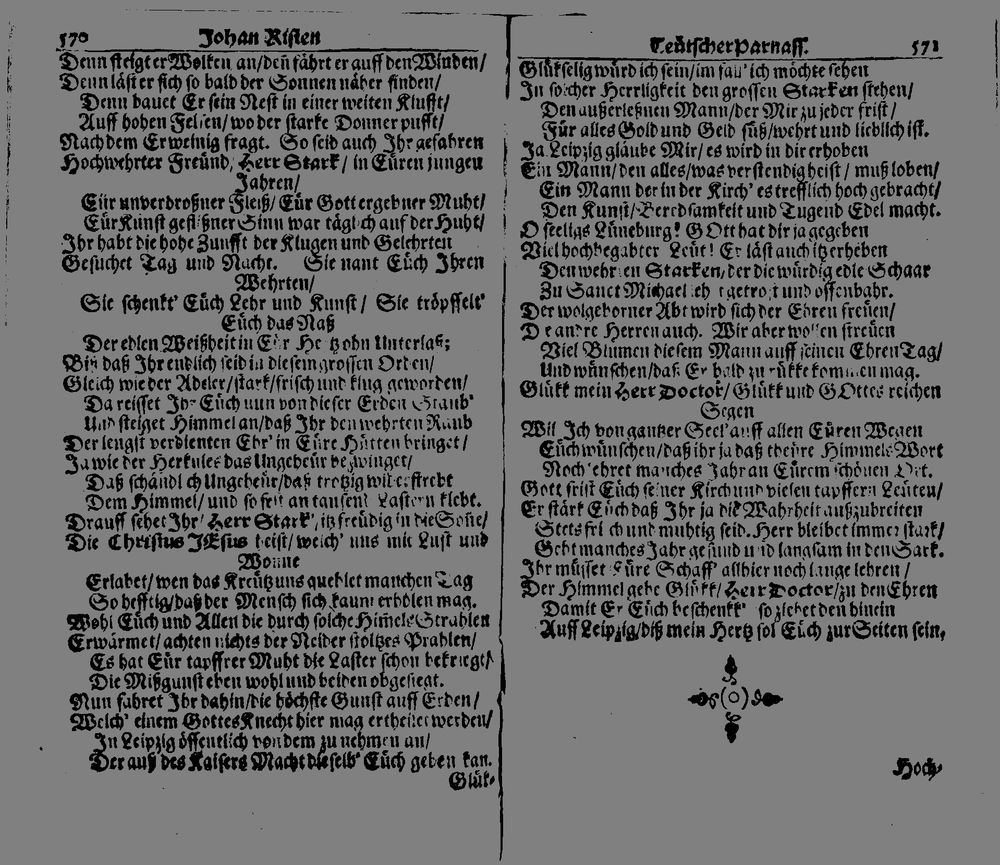 570 Johan Risten
Denn steigt er Wolken an/ deñ fährt er auff den Winden/
Denn läst er sich so bald der Sonnen näher finden/
Denn bauet Er sein Nest in einer weiten Klufft/
Auff hohen Felsen/ wo der starke Donner pufft/
Nach dem Er wenig fragt. So seid auch Ihr gefahren
Hochwehrter Freünd, Herr Stark/ in Eüren jungen
Jahren/
Eür unverdroßner Fleiß/ Eür Gott ergebner Muht/
Eür Kunst geflißner Sinn war täglich auf der Huht/
Ihr habt die hohe Zunfft der Klugen und Gelehrten
Gesuchet Tag und Nacht. Sie nant Eüch Ihren
Wehrten/
Sie schenkt' Eüch Lehr und Kunst/ Sie tröpffelt'
Eüch das Naß
Der edlen Weißheit in Eür Hertz ohn Unterlaß;
Biß daß Ihr endlich seid in diesem grossen Orden/
Gleich wie der Adeler/ stark/ frisch und klug geworden/
Da reisset Ihr Eüch nun von dieser Erden Staub'
Und steiget Himmel an/ daß Ihr den wehrten Raub
Der lengst verdienten Ehr' in Eüre Hütten bringet/
Ja wie der Herkules das Ungeheür bezwinget/
Daß schändlich Ungeheür/ daß trotzig widerstrebt
Dem Himmel/ und so fest an tausend Lastern klebt.
Drauff sehet Ihr' Herr Stark', itz freüdig in die Soñe/
Die Christus JEsus heist/ welch' uns mit Lust und
Wonne
Erlabet/ wen das Kreütz uns quehlet manchen Tag
So hefftig/ daß der Mensch sich kaum erholen mag.
Wohl Eüch und Allen die durch solche Himels Strahlen
Erwärmet/ achten nichts der Neider stoltzes Prahlen/
Es hat Eür tapffrer Muht die Laster schon bekriegt/
Die Mißgunst eben wohl und beiden obgesiegt.
Nun fahret Ihr dahin/ die höchste Gunst auff Erden/
Welch' einem Gottes Knecht hier mag ertheilet werden/
In Leipzig öffentlich von dem zu nehmen an/
Der auß des Kaisers Macht dieselb' Eüch geben kan.
Glük-
Teütscher Parnass. 571
Glükselig würd ich sein/ im fall' ich möchte sehen
In solcher Herrligkeit den grossen Starken stehen/
Den außerleßnen Mann/ der Mir zu jeder frist/
Für alles Gold und Geld süß/ wehrt und lieblich ist.
Ja Leipzig gläube Mir/ es wird in dir erhoben
Ein Mann/ den alles/ was verstendig heist/ muß loben/
Ein Mann der in der Kirch' es trefflich hoch gebracht/
Den Kunst/ Beredsamkeit und Tugend Edel macht.
O seeligs Lüneburg! GOtt hat dir ja gegeben
Viel hochbegabter Leüt! Er läst auch itz erheben
Den wehrten Starken, der die würdig edle Schaar
Zu Sanct Michael lehret getrost und offenbahr.
Der wolgeborner Abt wird sich der Ehren freüen/
Die andre Herren auch. Wir aber wollen streüen
Viel Blumen diesem Mann auff seinen Ehren Tag/
Und wünschen/ daß Er bald zu rükke kommen mag.
Glükk mein Herr Doctor/ Glükk und GOttes reichen
Segen
Wil Ich von gantzer Seel' auff allen Eüren Wegen
Eüch wünschen/ daß ihr ja daß theüre Himmels Wort
Noch' ehret manches Jahr an Eürem schönen Ort.
Gott frist Eüch seiner Kirch und vielen tapffern Leüten/
Er stärk Eüch daß Ihr ja die Wahrheit außzubreiten
Stets frisch und muhtig seid. Herr bleibet immer stark/
Geht manches Jahr gesund und langsam in den Sark.
Ihr müsset Eüre Schaff' allhier noch lange lehren/
Der Himmel gebe Glükk/ Herr Doctor/ zu den Ehren
Damit Er Eüch beschenkk' so ziehet den hinein
Auff Leipzig/ diß mein Hertz sol Eüch zur Seiten sein,
Hoch-